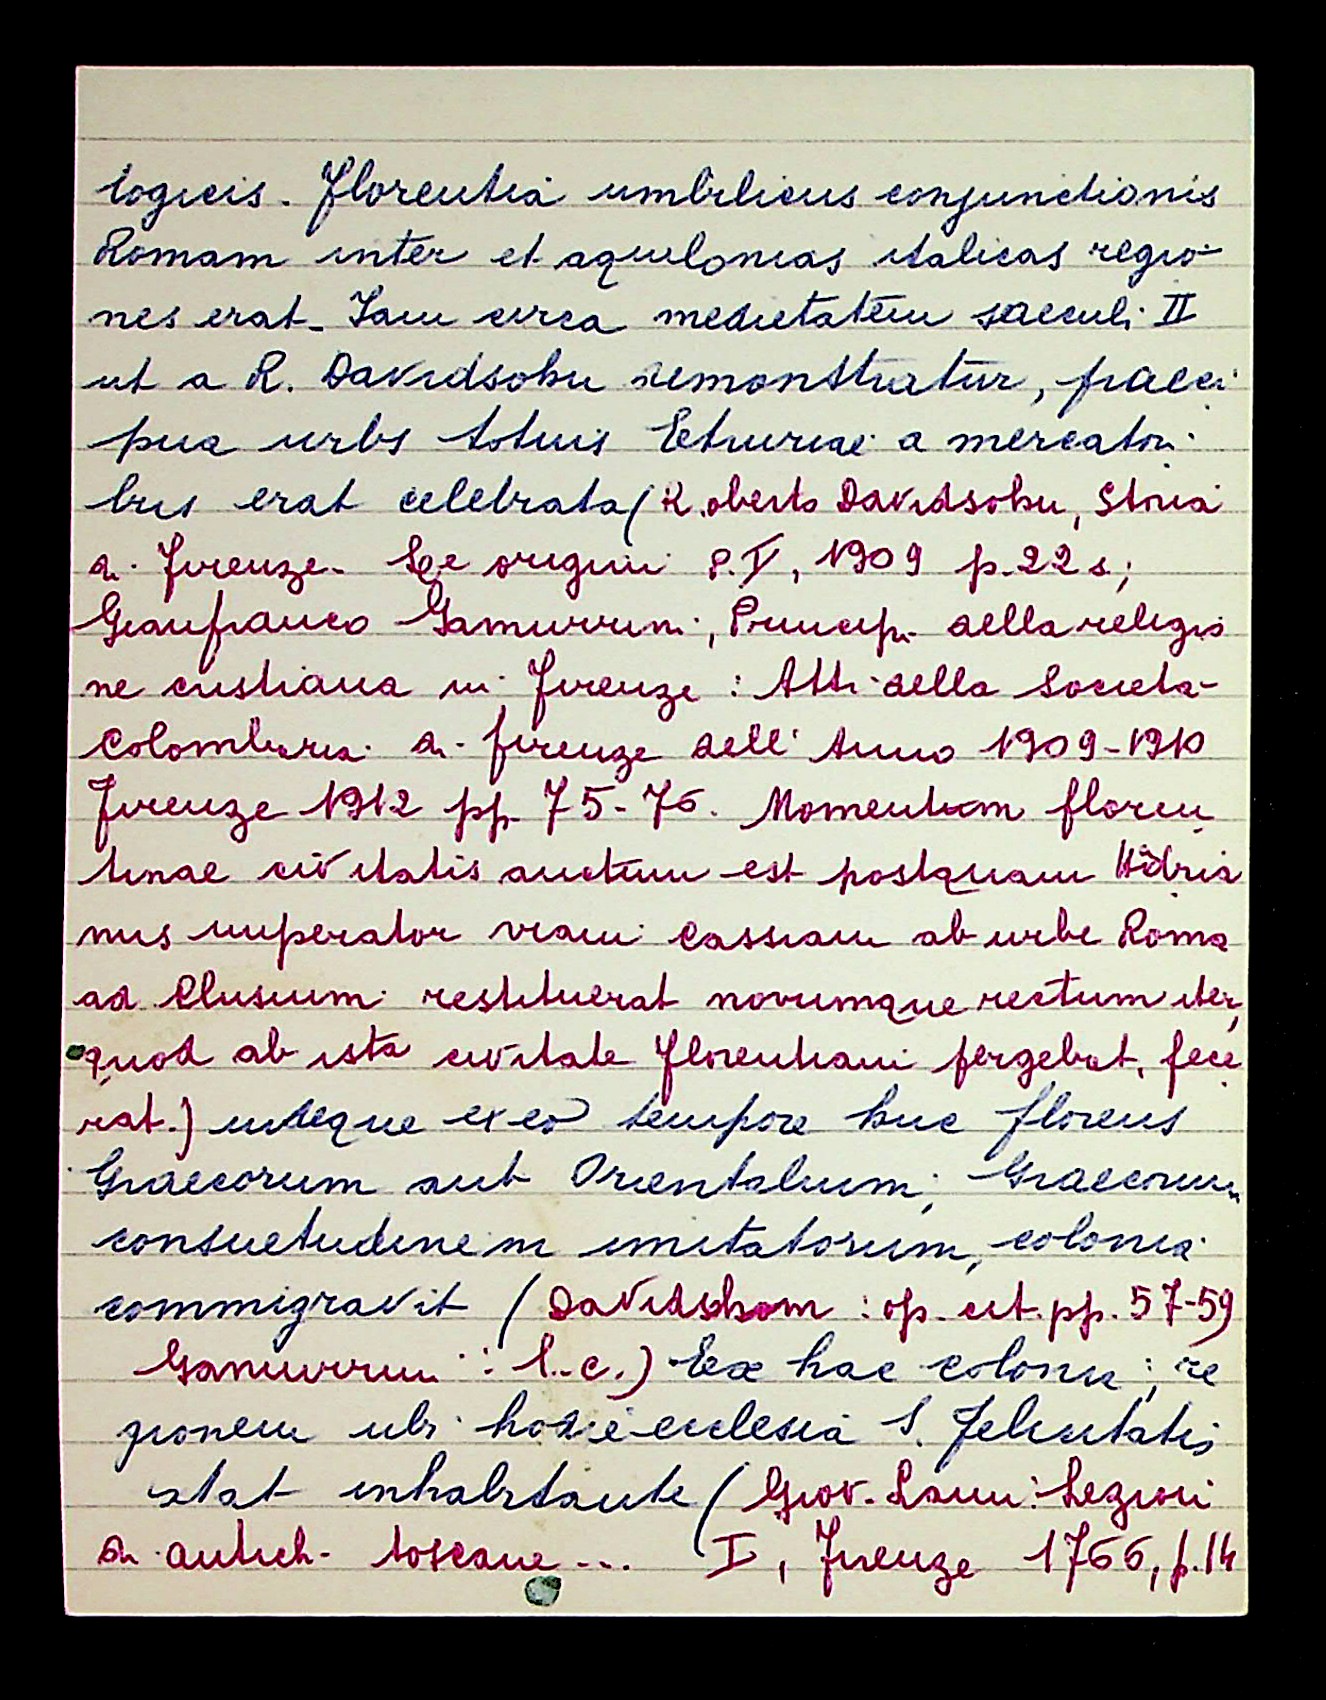 logicis. Florentia umbilicus conjunctionis
Romam inter et aquilonias italicas regio-
nes erat. Jam circa medietatem saeculi II
ut a R. Davidsohn demonstratur, praeci
pua urbs totius Etruriae a mercatori
bus erat celebrata (Roberto Davidsohn, Storia
di Firenze. Le origini P. I, 1909 p. 22 s;
Gianfranco Gamurrini, Principi della religio
ne cristiana in Firenze: Atti della Societa
Colombaria di Firenze dell' Anno 1909-1910
Firenze 1912 pp. 75-76. Momentum floren
tinae civitatis auctum est postquam Hadria
nus imperator viam Cassiam ab urbe Roma
ad Clusium restituerat novumque rectum iter,
quod ab ista civitate Florentiam pergebat, fece
rat.) indeque ex eo tempore huc florens
Graecorum aut Orientalium, Graecorum
consuetudinem imitatorum, colonia
commigravit (Davidsohn: op. cit. pp. 57-59
Gamurrini: l. c.) Ex hac colonia, re
gionem ubi hodie ecclesia S. Felicitatis
stat inhabitante (Giov. Lami: Lezioni
di antich. toscane ... I, Firenze 1766, p. 14